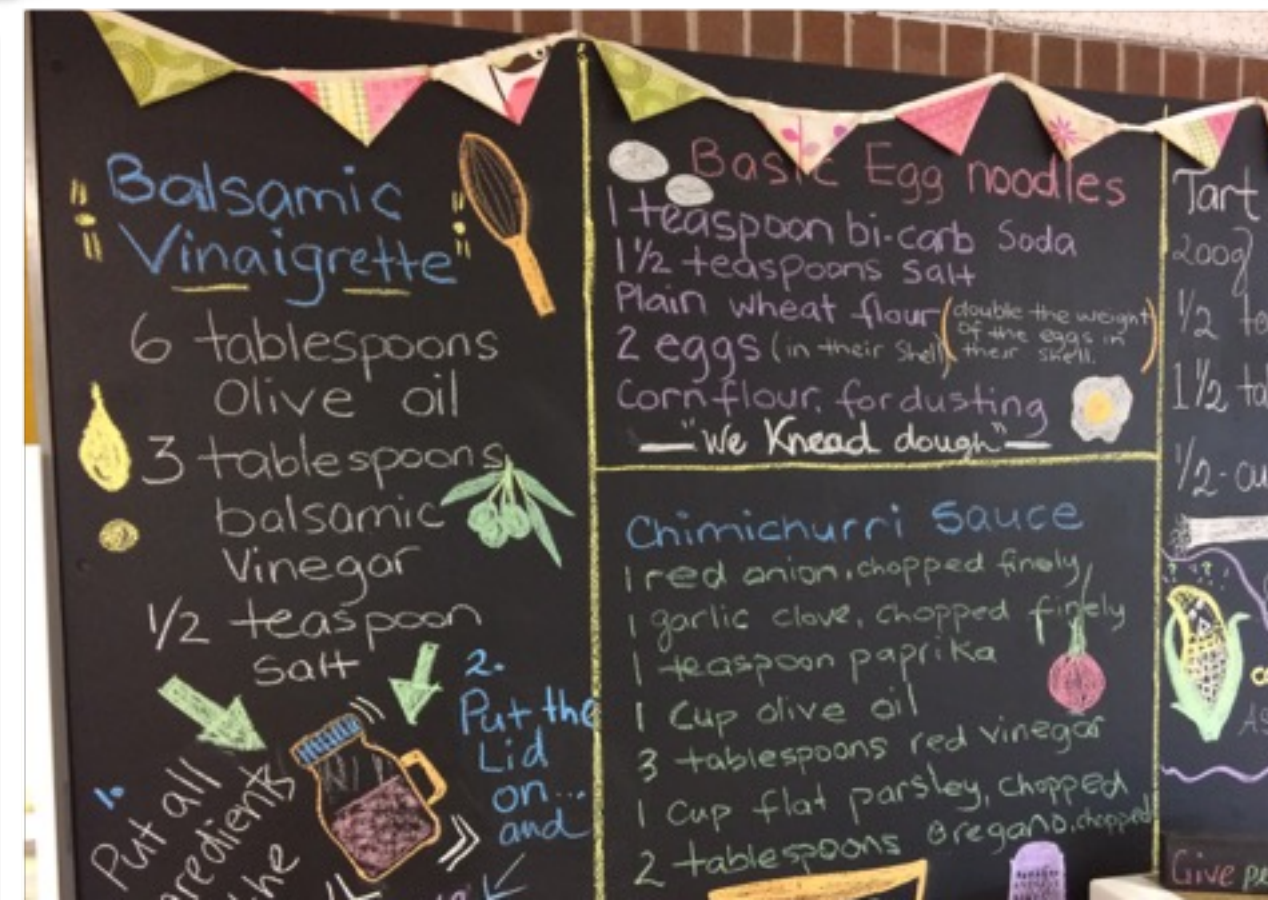 Balsamic
Vinaigrette
6 tablespoons
Olive oil
3 tablespoons
balsamic
Vinegar
1/2 teaspoon
salt
1.
Put all
the
2.
Put the
Lid
on...
and
Basic Egg noodles
1 teaspoon bi-carb Soda
1½ teaspoons salt
Plain wheat flour (double the weight
of the eggs in
their shell.)
2 eggs (in their shell)
Corn flour. for dusting
"We Knead dough"
Chimichurri Sauce
1 red onion, chopped finely
1 garlic clove, chopped finely
1 teaspoon paprika
1 Cup olive oil
3 tablespoons red vinegar
1 Cup flat parsley, chopped
2 tablespoons oregano, chopped
Tart
200g
1/2
1 1/2
1/2 -
Give